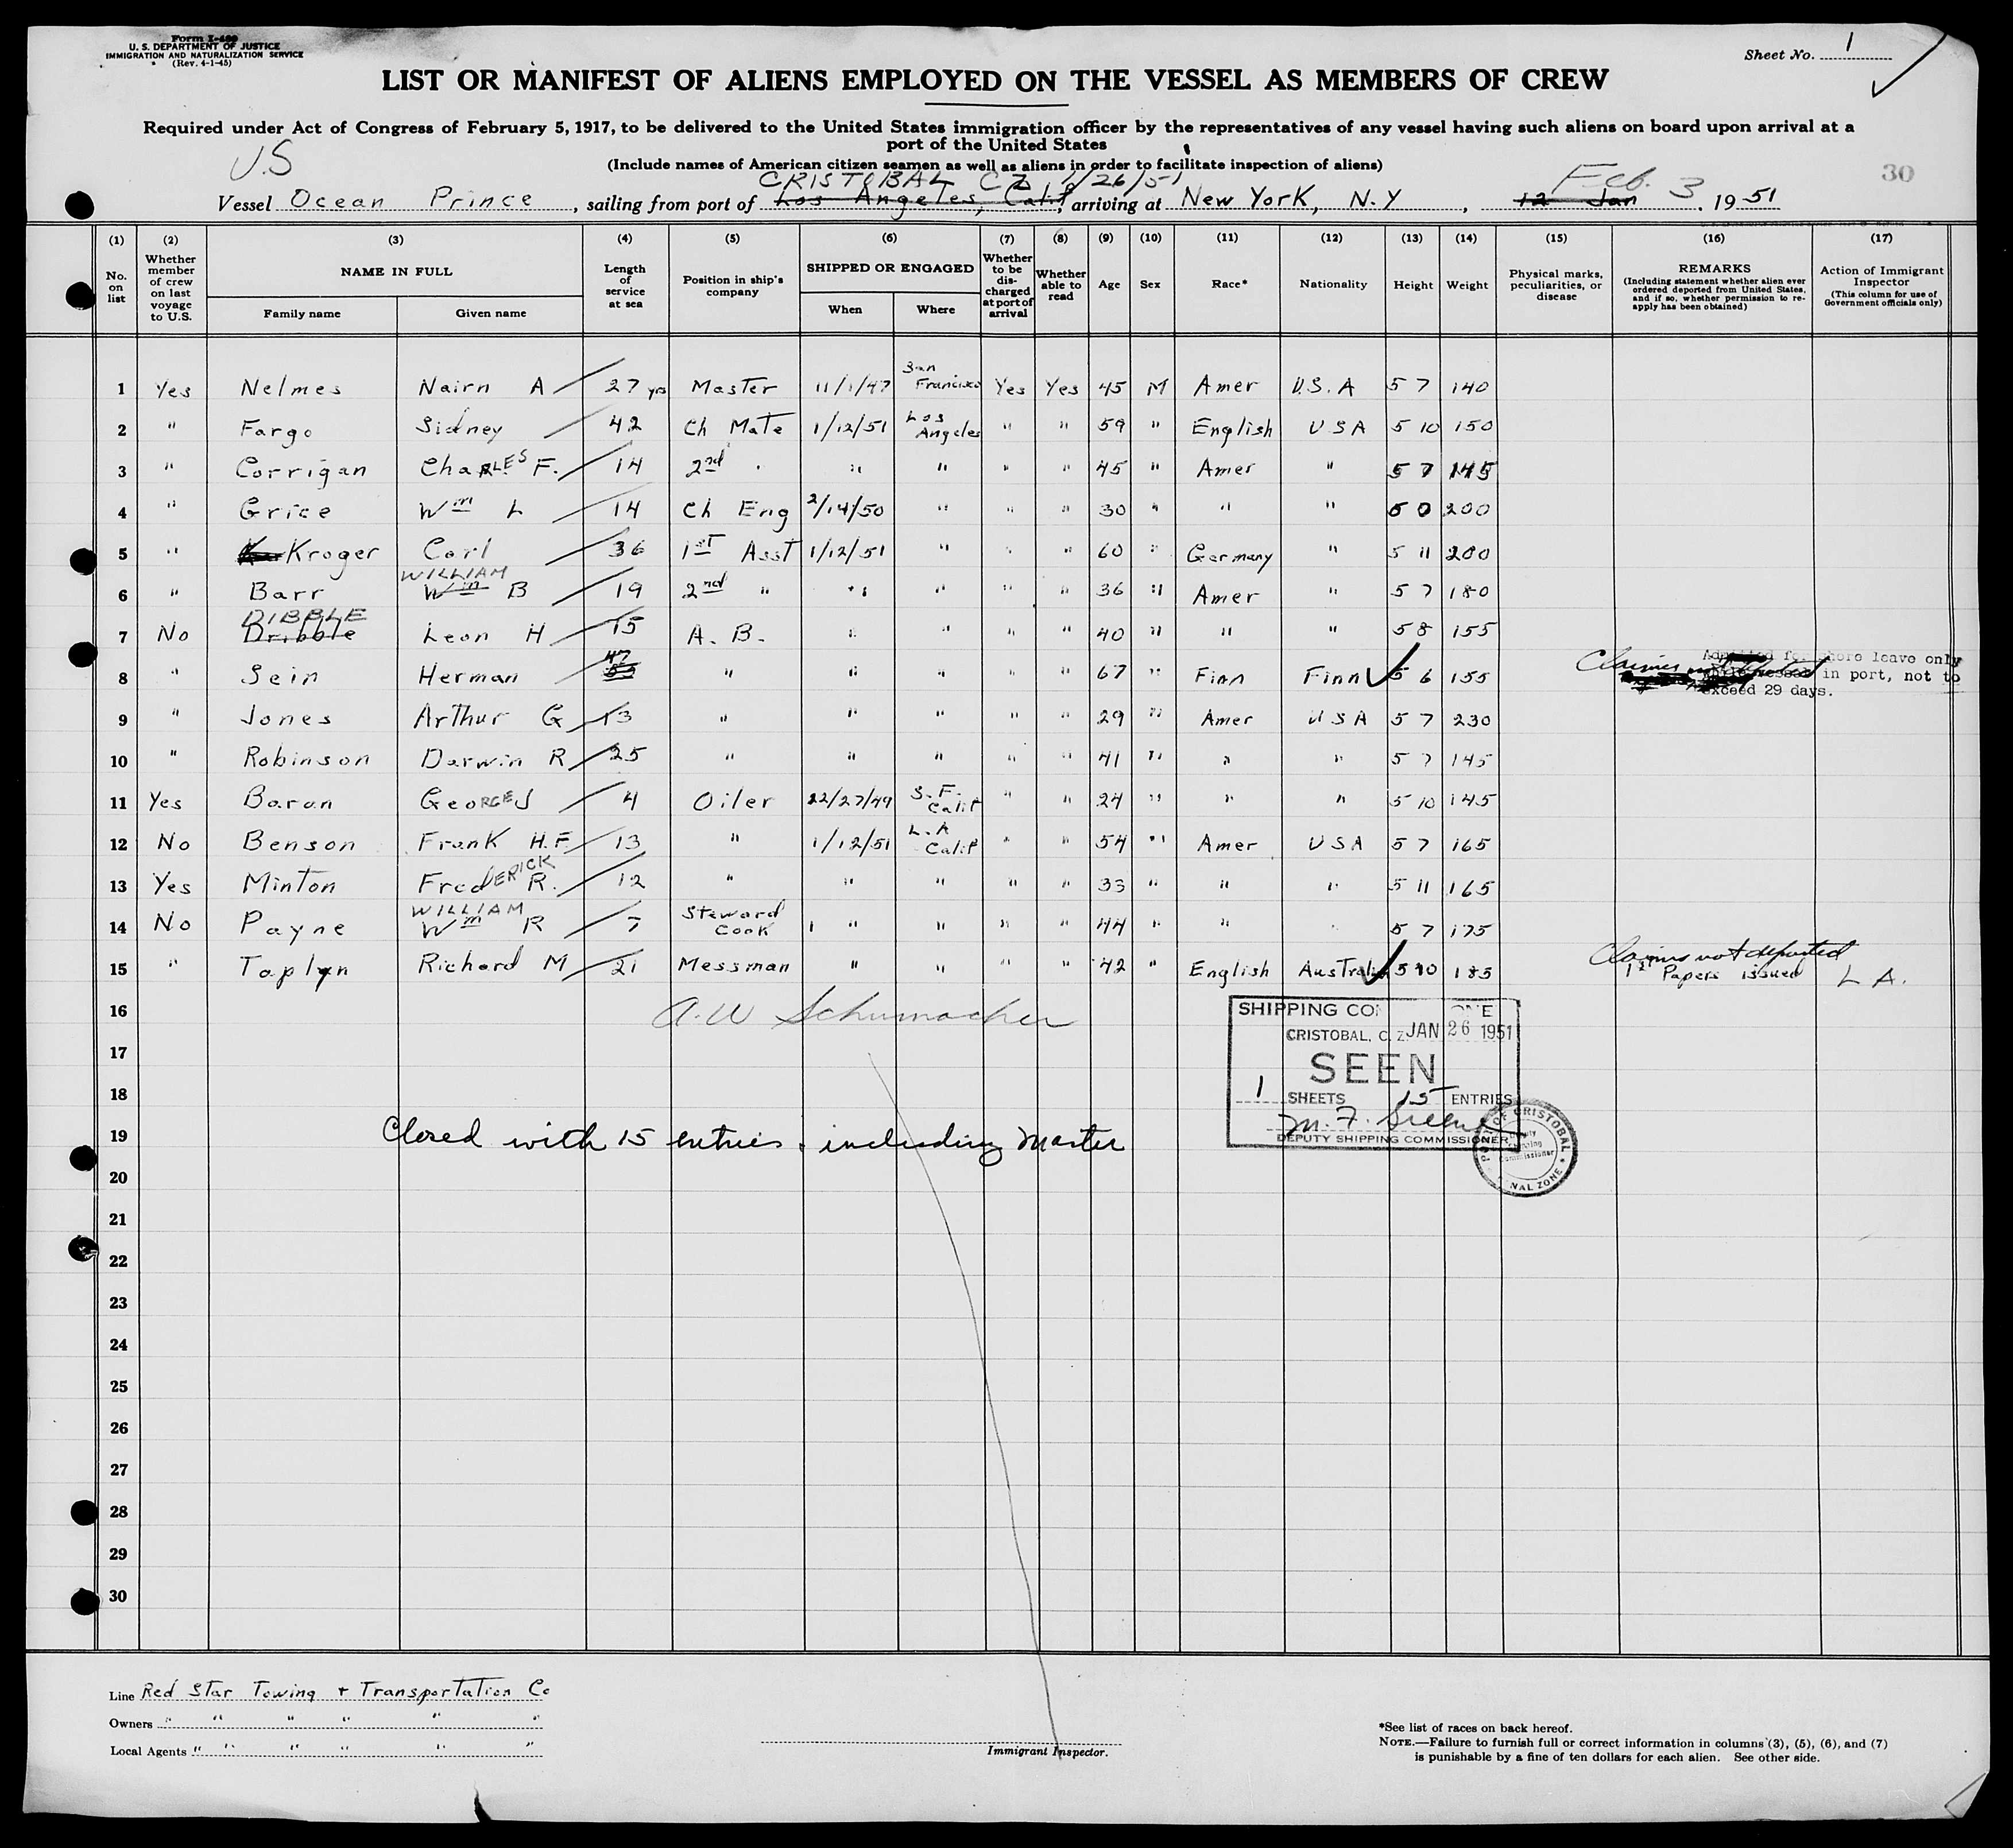 Form I-489
U. S. DEPARTMENT OF JUSTICE
IMMIGRATION AND NATURALIZATION SERVICE
(Rev. 4-1-45)
Sheet No. 1
LIST OR MANIFEST OF ALIENS EMPLOYED ON THE VESSEL AS MEMBERS OF CREW
Required under Act of Congress of February 5, 1917, to be delivered to the United States immigration officer by the representatives of any vessel having such aliens on board upon arrival at a
port of the United States
(Include names of American citizen seamen as well as aliens in order to facilitate inspection of aliens)
U.S
30
CRISTOBAL CZ 1/26/51 Feb. 3
Vessel Ocean Prince, sailing from port of Los Angeles, Calif, arriving at New York, N.Y, 12 Jan, 1951
(1) (2) (3) (4) (5) (6) (7) (8) (9) (10) (11) (12) (13) (14) (15) (16) (17)
No. on list
Whether member of crew on last voyage to U.S.
NAME IN FULL
Family name
Given name
Length of service at sea
Position in ship's company
SHIPPED OR ENGAGED
When
Where
Whether to be discharged at port of arrival
Whether able to read
Age
Sex
Race*
Nationality
Height
Weight
Physical marks, peculiarities, or disease
REMARKS
(Including statement whether alien ever ordered deported from United States, and if so, whether permission to re-apply has been obtained)
Action of Immigrant Inspector
(This column for use of Government officials only)
1 Yes Nelmes Nairn A 27 yrs Master 11/1/47 San Francisco Yes Yes 45 M Amer U.S.A 5 7 140
2 " Fargo Sidney 42 Ch Mate 1/12/51 Los Angeles " " 59 " English USA 5 10 150
3 " Corrigan CharLES F. 14 2nd " " " " " 45 " Amer " 5 7 145
4 " Grice Wm L 14 Ch Eng 2/14/50 " " " 30 " " " 5 0 200
5 " Kroger Carl 36 1st Asst 1/12/51 " " " 60 " Germany " 5 11 200
WILLIAM
6 " Barr Wm B 19 2nd " " " " " 36 " Amer " 5 7 180
DIBBLE
7 No Dribble Leon H 15 A.B. " " " " 40 " " " 5 8 155
8 " Sein Herman 47 " " " " " 67 " Finn Finn 5 6 155 Claims not deported
Admitted for shore leave only
while vessel in port, not to
exceed 29 days.
9 " Jones Arthur G 13 " " " " " 29 " Amer USA 5 7 230
10 " Robinson Darwin R 25 " " " " " 41 " " " 5 7 145
11 Yes Baran GeoRGE J 4 Oiler 12/27/49 S.F. Calif " " 24 " " " 5 10 145
12 No Benson Frank H.F 13 " 1/12/51 L.A Calif " " 54 " Amer USA 5 7 165
13 Yes Minton FredERICK R. 12 " " " " " 33 " " " 5 11 165
WILLIAM
14 No Payne Wm R 7 Steward Cook " " " " 44 " " " 5 7 175
15 " Taplyn Richard M 21 Messman " " " " 42 " English Australia 5 10 185 Claims not deported
1st Papers issued L A.
16
A.W Schumacher
17
18
19
Closed with 15 entries, including Master
20
21
22
23
24
25
26
27
28
29
30
SHIPPING
CRISTOBAL, C. Z. JAN 26 1951
SEEN
1 SHEETS 15 ENTRIES
M. F. Greene
DEPUTY SHIPPING COMMISSIONER
PORT OF CRISTOBAL
Deputy Shipping Commissioner
CANAL ZONE
Line Red Star Towing + Transportation Co
Owners " " " " " "
Local Agents " " " " " "
Immigrant Inspector.
*See list of races on back hereof.
NOTE.—Failure to furnish full or correct information in columns (3), (5), (6), and (7)
is punishable by a fine of ten dollars for each alien. See other side.